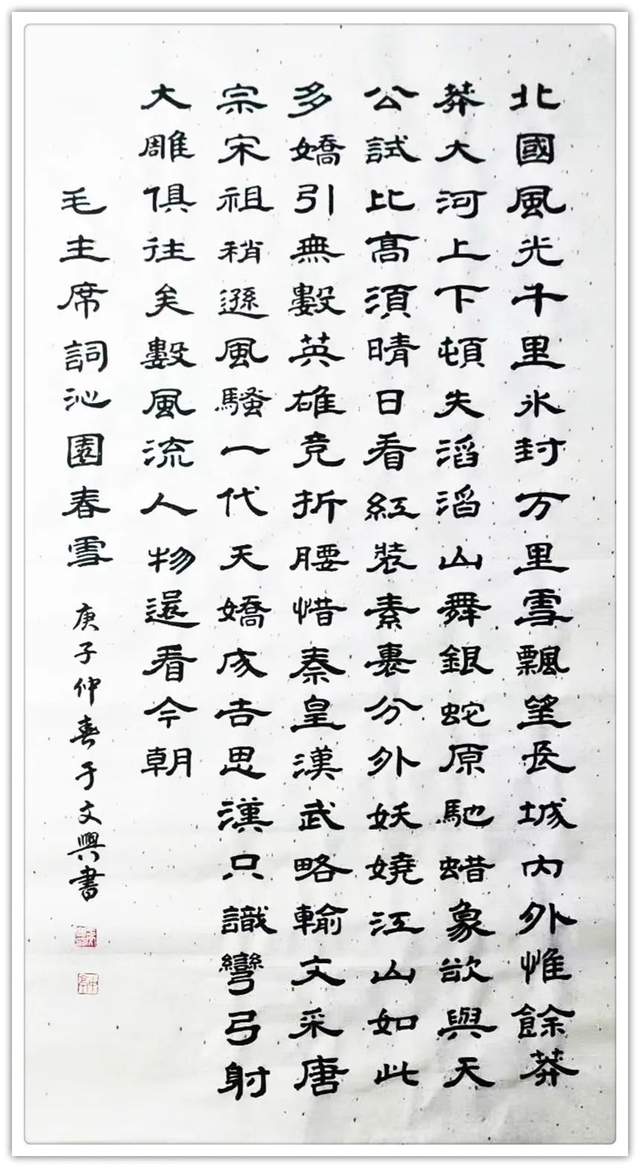 北國風光千里氷封万里雪飄望長城内外惟餘莽
莽大河上下頓失滔滔山舞銀蛇原馳蜡象欲與天
公試比高須晴日看紅裝素裹分外妖嬈江山如此
多嬌引無數英雄竞折腰惜秦皇漢武略輸文采唐
宗宋祖稍遜風騷一代天嬌成吉思漢只識彎弓射
大雕俱往矣數風流人物還看今朝
毛主席詞沁園春雪 庚子仲春于文興書